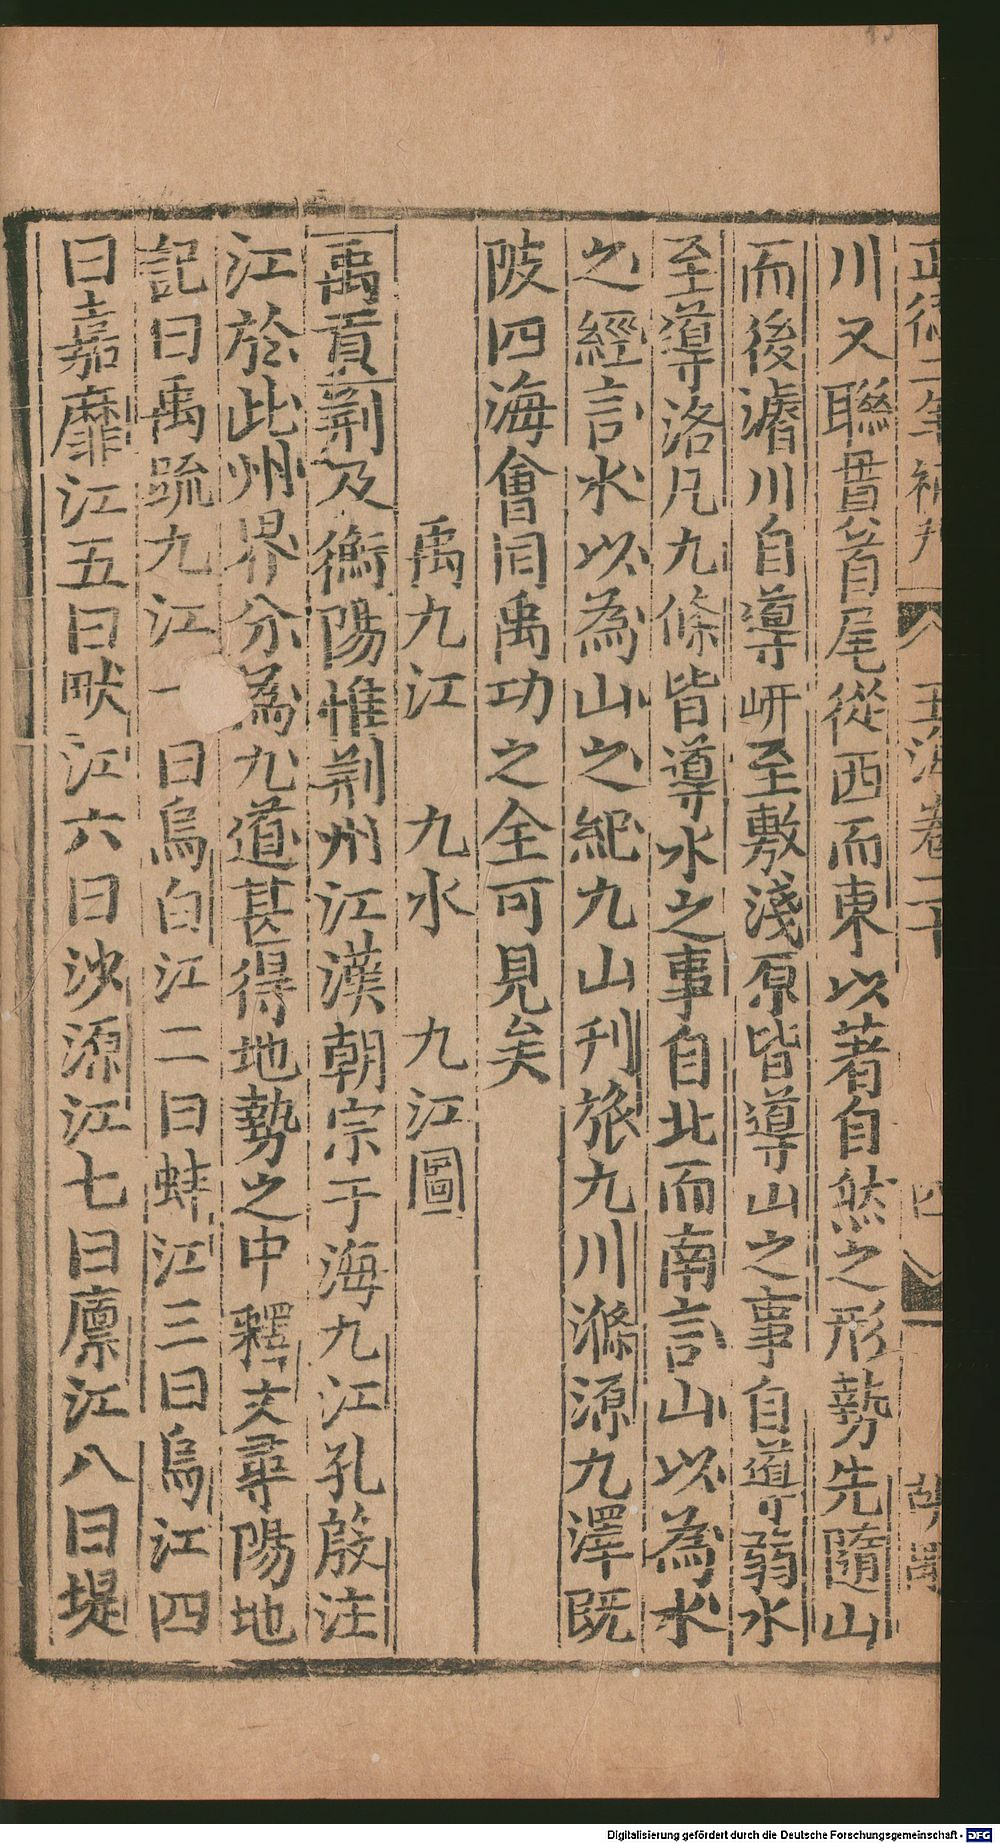 正德二年補刋 玉海卷二十 四
川又聯貫首尾從西而東以著自然之形勢先隨山
而後濬川自導岍至敷淺原皆導山之事自導弱水
至導洛凡九條皆導水之事自北而南言山以為水
之經言水以為山之紀九山刋旅九川滌源九澤既
陂四海會同禹功之全可見矣
禹九江 九水 九江圖
禹貢荆及衡陽惟荆州江漢朝宗于海九江孔殷注
江於此州界分為九道甚得地勢之中釋文尋陽地
記曰禹疏九江一曰烏白江二曰蚌江三曰烏江四
曰嘉靡江五曰畎江六曰沙源江七曰廪江八曰堤
Digitalisierung gefördert durch die Deutsche Forschungsgemeinschaft - DFG